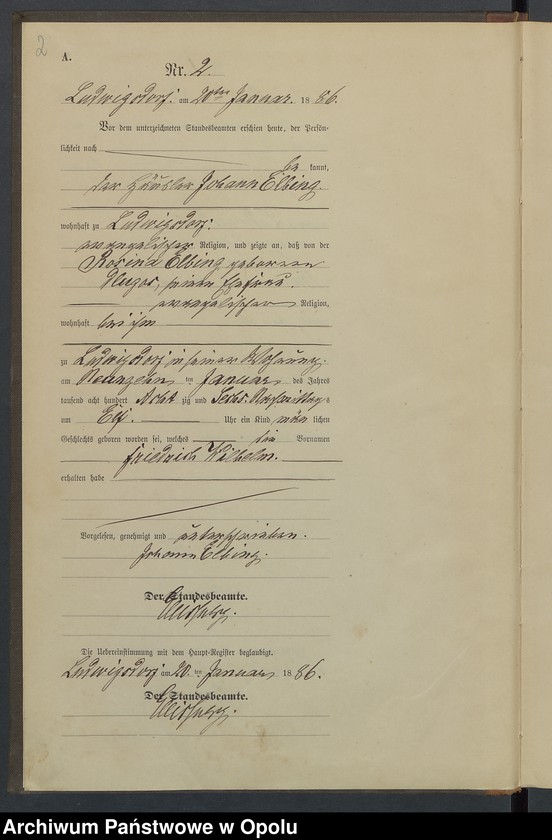 2
A.
Nr. 2.
Ludwigsdorf. am 20ten Januar. 1886.
Vor dem unterzeichneten Standesbeamten erschien heute, der Persön-
lichkeit nach
be kannt,
der Häusler Johann Elbing.
wohnhaft zu Ludwigsdorf.
evangelischer Religion, und zeigte an, daß von der
Rosina Elbing geborenen
seiner Ehefrau.
evangelischen Religion,
wohnhaft bei ihm
zu Ludwigsdorf in seiner Wohnung.
am Neunzehn ten Januar des Jahres
tausend acht hundert Acht zig und Sechs Nachmittags
um Elf. Uhr ein Kind männ lichen
Geschlechts geboren worden sei, welches die Vornamen
Friedrich Wilhelm.
erhalten habe
Vorgelesen, genehmigt und unterschrieben.
Johann Elbing.
Der Standesbeamte.
Die Uebereinstimmung mit dem Haupt-Register beglaubigt.
Ludwigsdorf am 20. ten Januar 1886.
Der Standesbeamte.
Archiwum Państwowe w Opolu